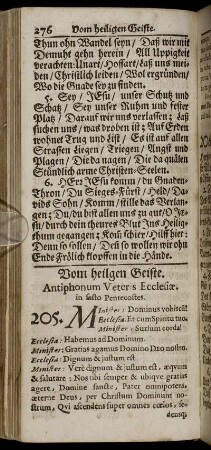 276 Vom heiligen Geiste.
Thun ohn Wandel seyn / Daß wir mit
Demuht gehn herein / All Uppigkeit
verachten: Unart / Hoffart / laß uns mei-
den / Christlich leiden / Wol ergründen /
Wo die Gnade sey zu finden.
5. Sey / JEsu / unser Schutz und
Schatz / Sey unser Ruhm und fester
Platz / Darauf wir uns verlassen; Laß
suchen uns / was droben ist; Auf Erden
wohnet Trug und List / Es ist auf allen
Strassen Liegen / Triegen / Angst und
Plagen / Die da nagen / Die da quälen
Stündlich arme Christen-Seelen.
6. HErr JEsu komm / du Gnaden-
Thron / Du Sieges-Fürst / Held / Da-
vids Sohn / Komm / stille das Verlan-
gen; Du / du bist allen uns zu gut / O JE-
su / durch dein theures Blut Ins Heilig-
thum gegangen; Komm schier / Hilff hier:
Denn so sollen / Denn so wollen wir ohn
Ende Frölich klopffen in die Hände.
Vom heilgen Geiste.
Antiphonum Veter s Ecclesiæ,
in festo Pentecostes.
205. Minister: Dominus vobiscū
Ecclesia Et cum Spiritu tuo.
Minister: Sursum corda!
Ecclesia: Habemus ad Dominum.
Minister: Gratias agamus Domino Deo nostro.
Ecclesia: Dignum & justum est
Minister: Verè dignum & justum est, æquum
& salutare: Nos tibi semper & ubique gratias
agere, Domine sancte, Pater omnipotens,
æterne Deus, per Christum Dominum no-
strum, Qui ascendens super omnes cœlos, se-
densq;